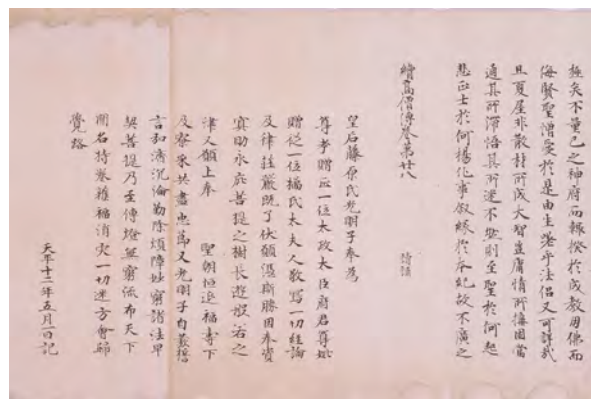 極矣不量己之神府而輒揆於成教因佛而
海賢聖憎愛於是由生
且夏屋非散材所成大智豈庸情所擾固當
通其所滯悟其所迷不然則至聖於何起
悲正士於何揚化事叙緣於本紀故不廣之
續高僧傳卷第廿八
皇后藤原氏光明子奉為
尊考贈正一位太政太臣府君尊妣
贈從一位橘氏太夫人敬寫一切經論
及律莊嚴既了伏願憑斯勝因奉資
冥助永庇菩提之樹長遊般若之
津又願上奉 聖朝恒延福壽下
及寮采共盡忠節又光明子自發誓
言弘濟沉淪勤除煩障妙窮諸法早
契菩提乃至傳燈無窮流布天下
聞名持卷獲福消灾一切迷方會歸
覺路
天平十二年五月一日記